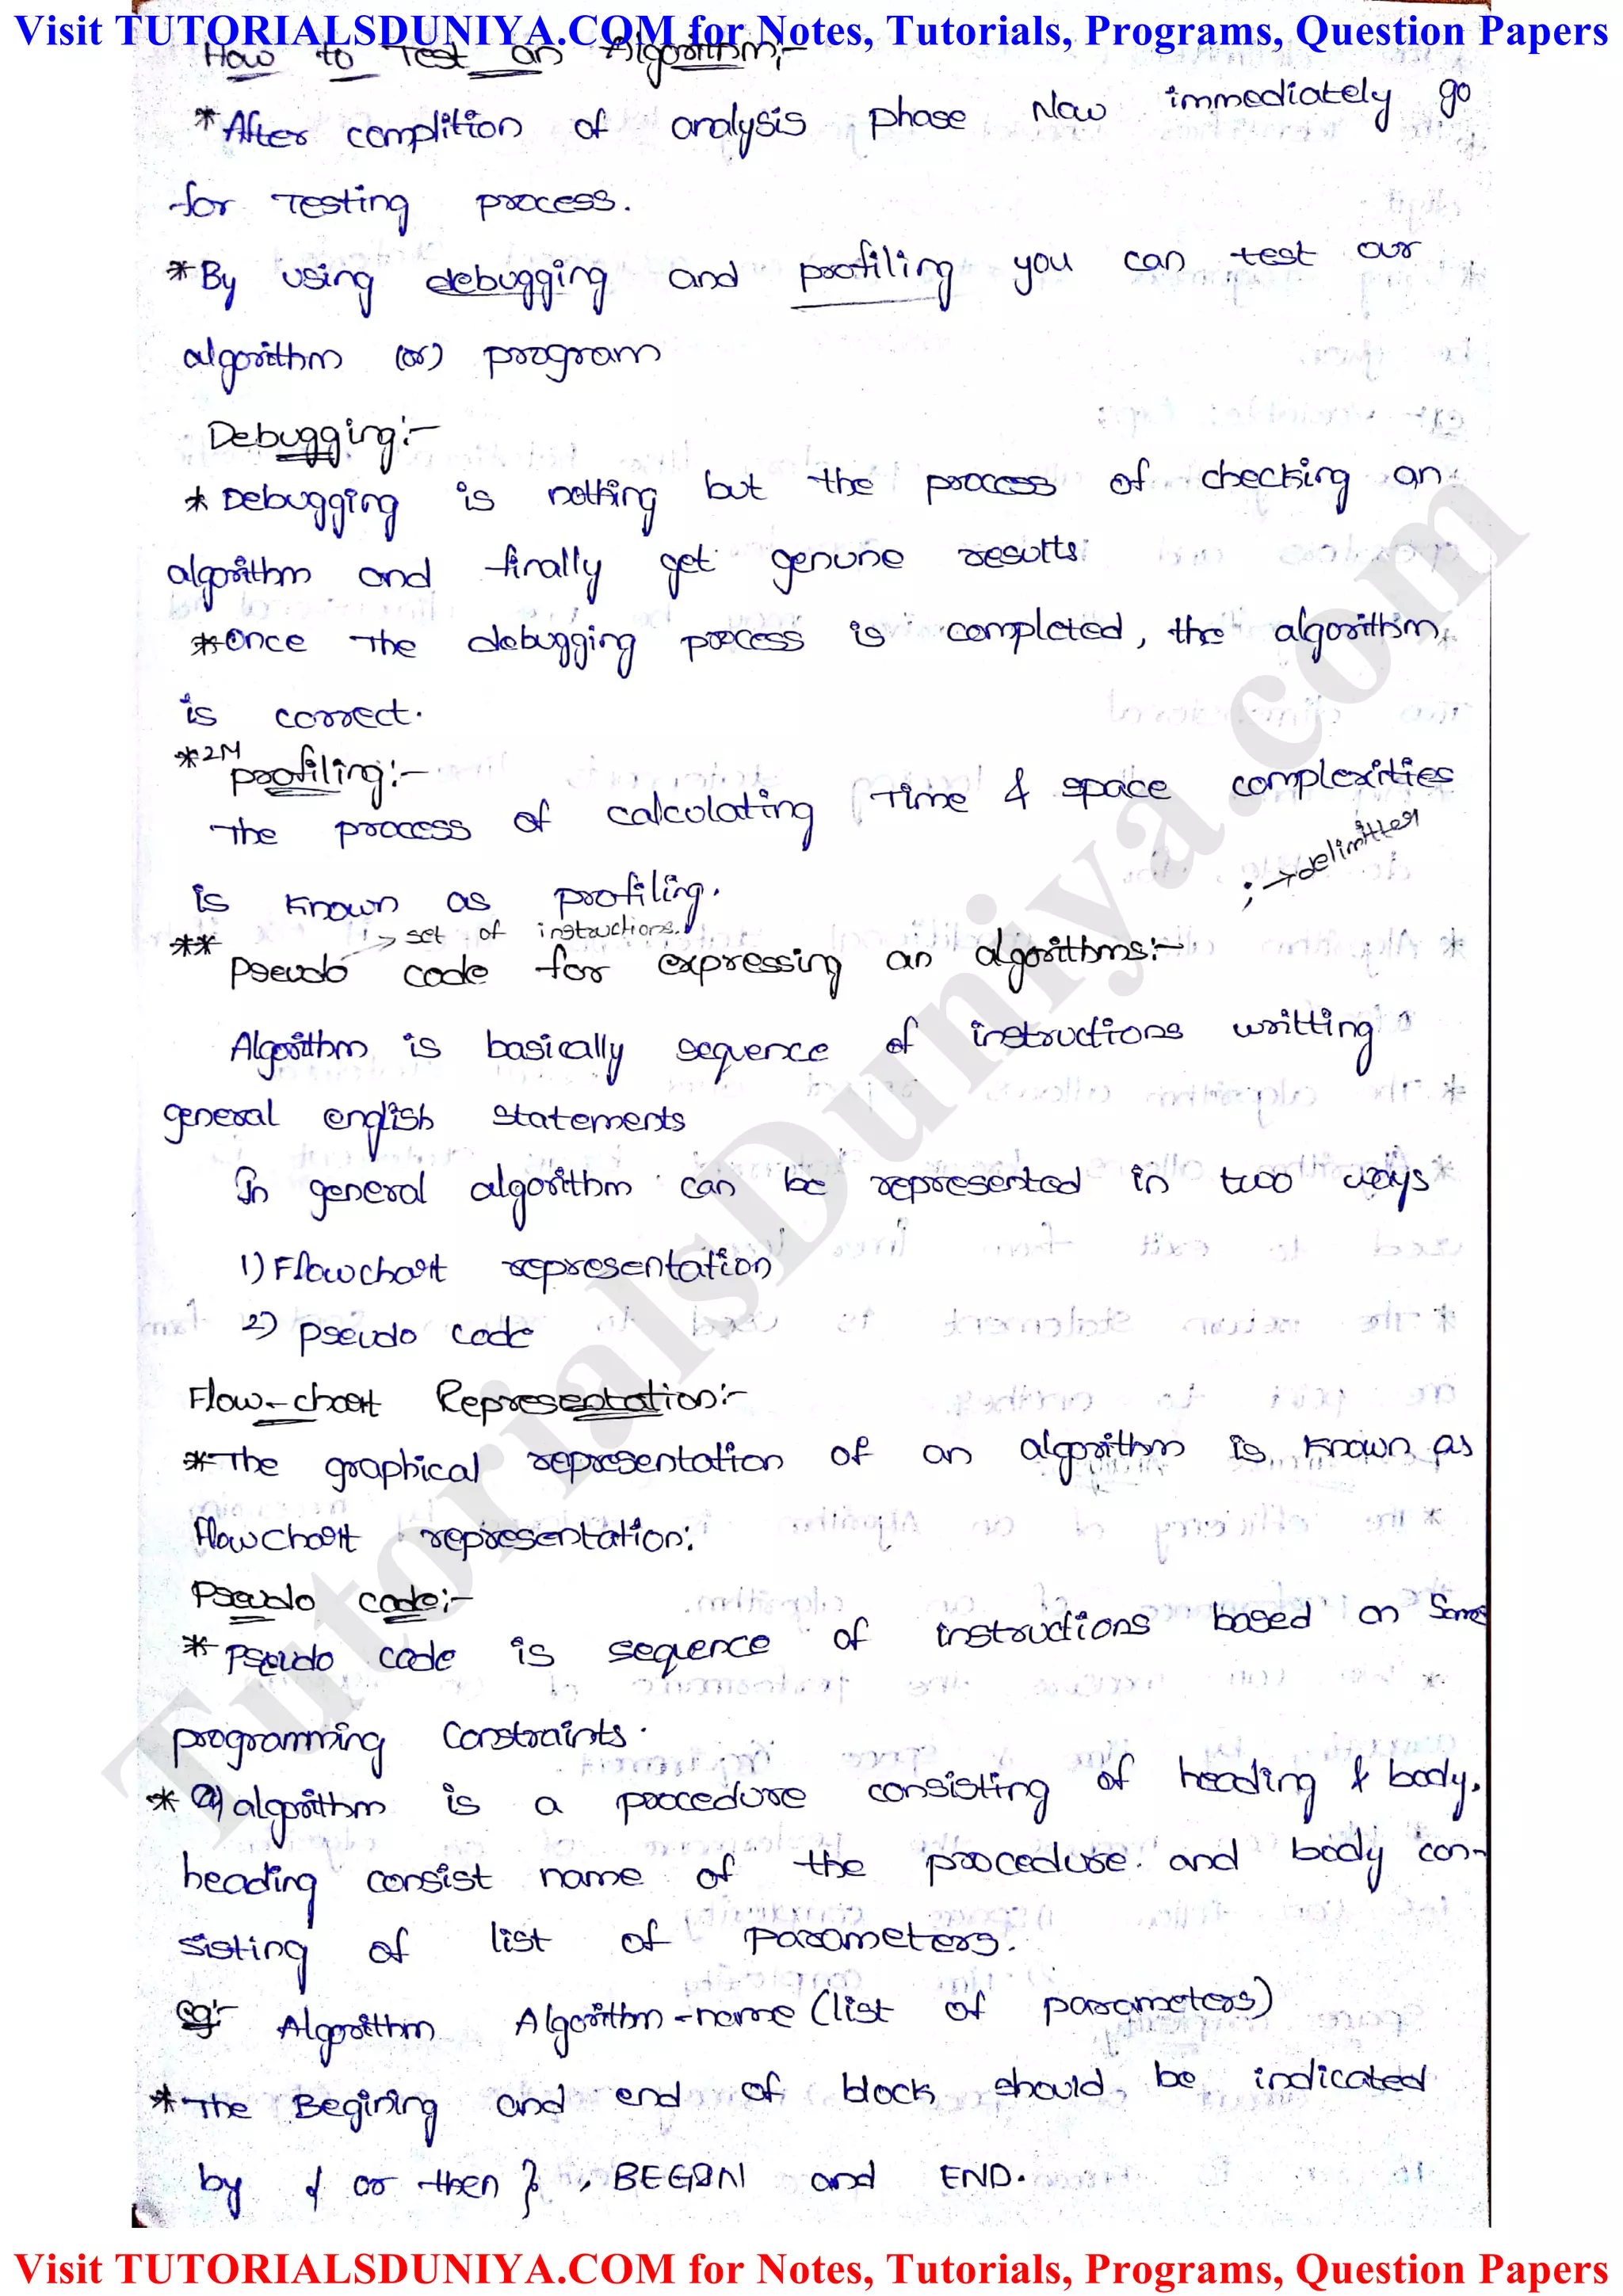 Visit TUTORIALSDUNIYA.COM for Notes, Tutorials, Programs, Question Papers
How to Test an Algorithm:-
*After complition of analysis phase Now immediately go
for Testing process.
*By using debugging and profiling you can test our
algorithm (or) program
Debugging:-
* Debugging is nothing but the process of checking an
algorithm and finally get genune results.
*Once The debugging process is completed, the algorithm
is correct.
*2M
profiling:-
The process of calculating Time & space complexities
; → delimitter
is known as profiling.
→ set of instructions.
** Pseudo code for expressing an algorithms:-
Algorithm is basically sequence of instructions writting
general english statements
In general algorithm can be represented in two ways
1) Flowchart representation
2) pseudo code
Flow-chart Representation:-
*The graphical representation of an algorithm is known as
flowchart representation.
Pseudo code:-
* Pseudo code is sequence of instructions based on Some
programming Constraints.
* algorithm is a procedure consisting of heading & body.
heading consist name of the procedure. and body con-
sisting of list of parameters.
eg:- Algorithm Algorithm-name (list of parameters)
*The Begining and end of block should be indicated
by { or then } , BEGIN and END.
TutorialsDuniya.com
Visit TUTORIALSDUNIYA.COM for Notes, Tutorials, Programs, Question Papers